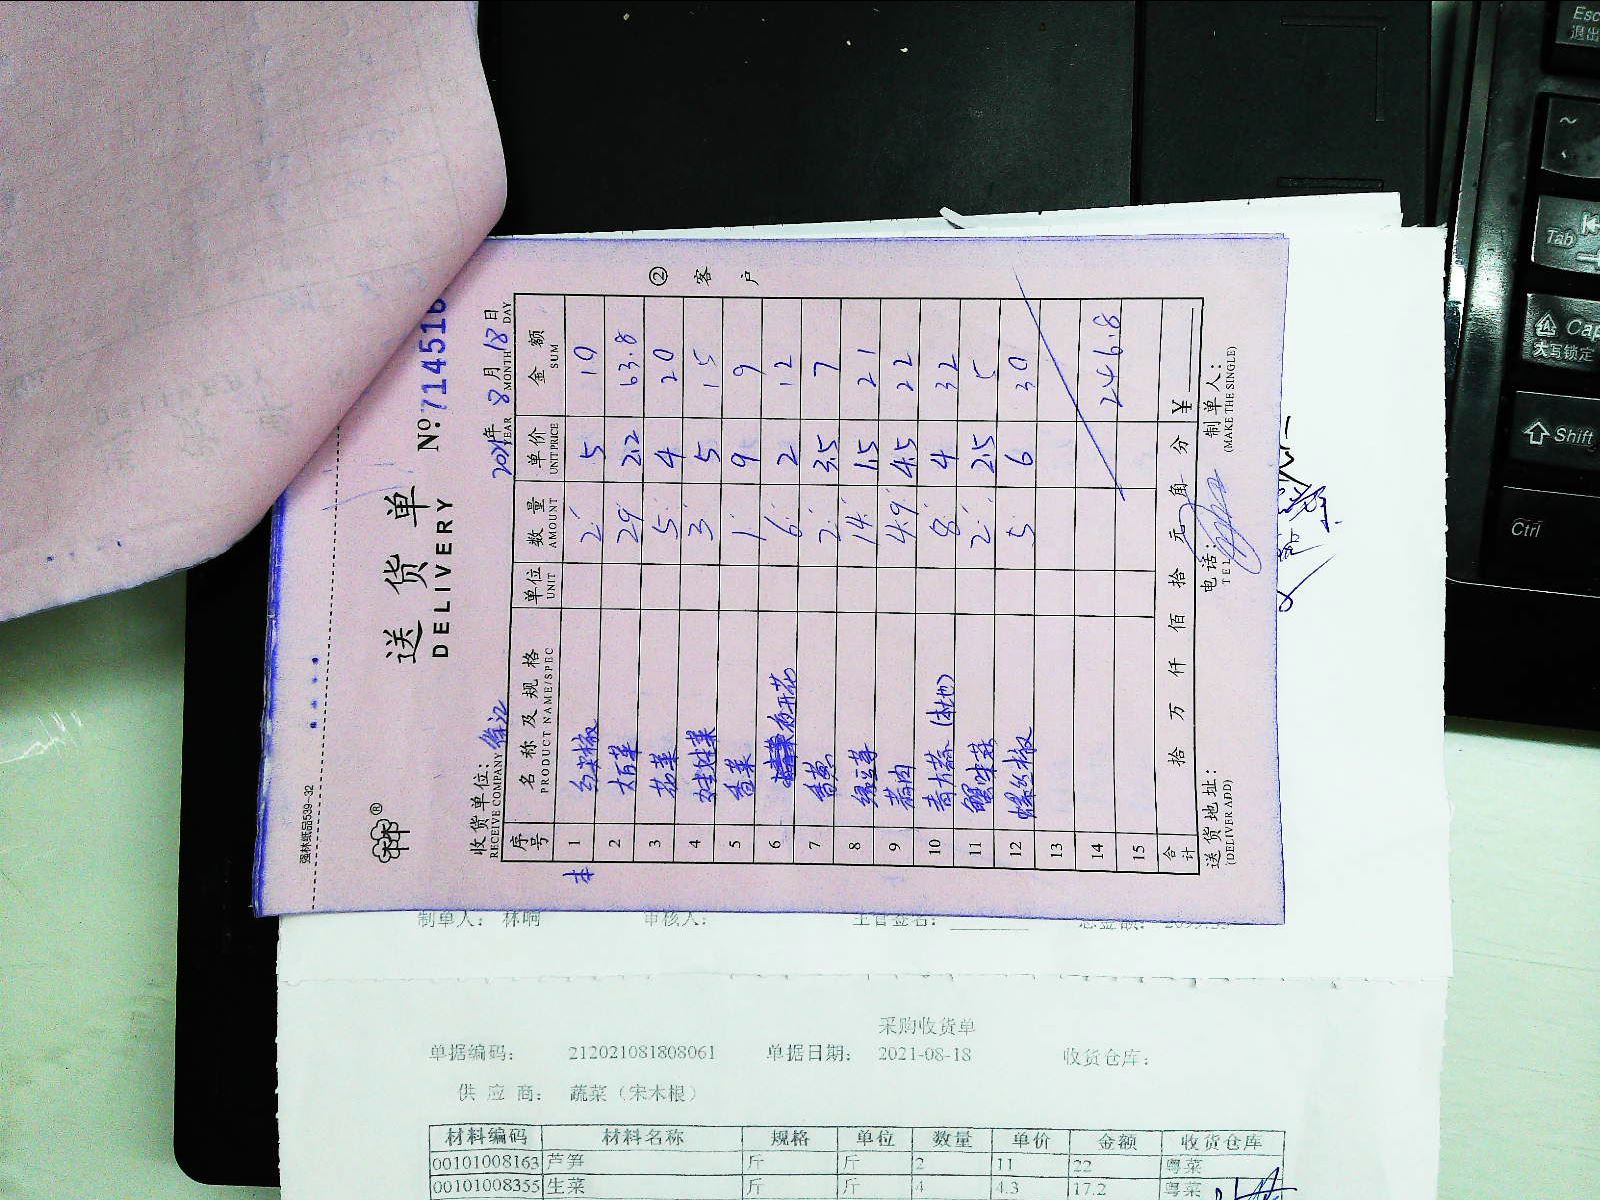 强林纸品539-32
送货单
DELIVERY
№:714516
收货单位:
RECEIVE COMPANY
2021年 8月 18日
YEAR MONTH DAY
② 客户
序号 名称及规格 单位 数量 单价 金额
PRODUCT NAME/SPEC UNIT AMOUNT UNIT PRICE SUM
本
1 红尖椒 2 5 10
2 大白菜 29 2.2 63.8
3 芥菜 5 4 20
4 娃娃菜 3 5 15
5 香菜 1 9 9
6 6 2 12
7 香葱 2 3.5 7
8 绿豆芽 14 1.5 21
9 蒜肉 4.9 4.5 22
10 青大蒜(本地) 8 4 32
11 蟹味菇 2 2.5 5
12 螺丝椒 5 6 30
13
14 246.8
15
合计 拾 万 仟 佰 拾 元 角 分 ¥
送货地址: 电话: 制单人:
(DELIVER ADD) TEL (MAKE THE SINGLE)
制单人: 林啊 审核人: 主管签名: 总金额:
采购收货单
单据编码: 212021081808061 单据日期: 2021-08-18 收货仓库:
供应商: 蔬菜(宋木根)
材料编码 材料名称 规格 单位 数量 单价 金额 收货仓库
00101008163 芦笋 斤 斤 2 11 22 粤菜
00101008355 生菜 斤 斤 4 4.3 17.2 粤菜
Esc
退出
~
Tab
Cap
大写锁定
Shift
Ctrl